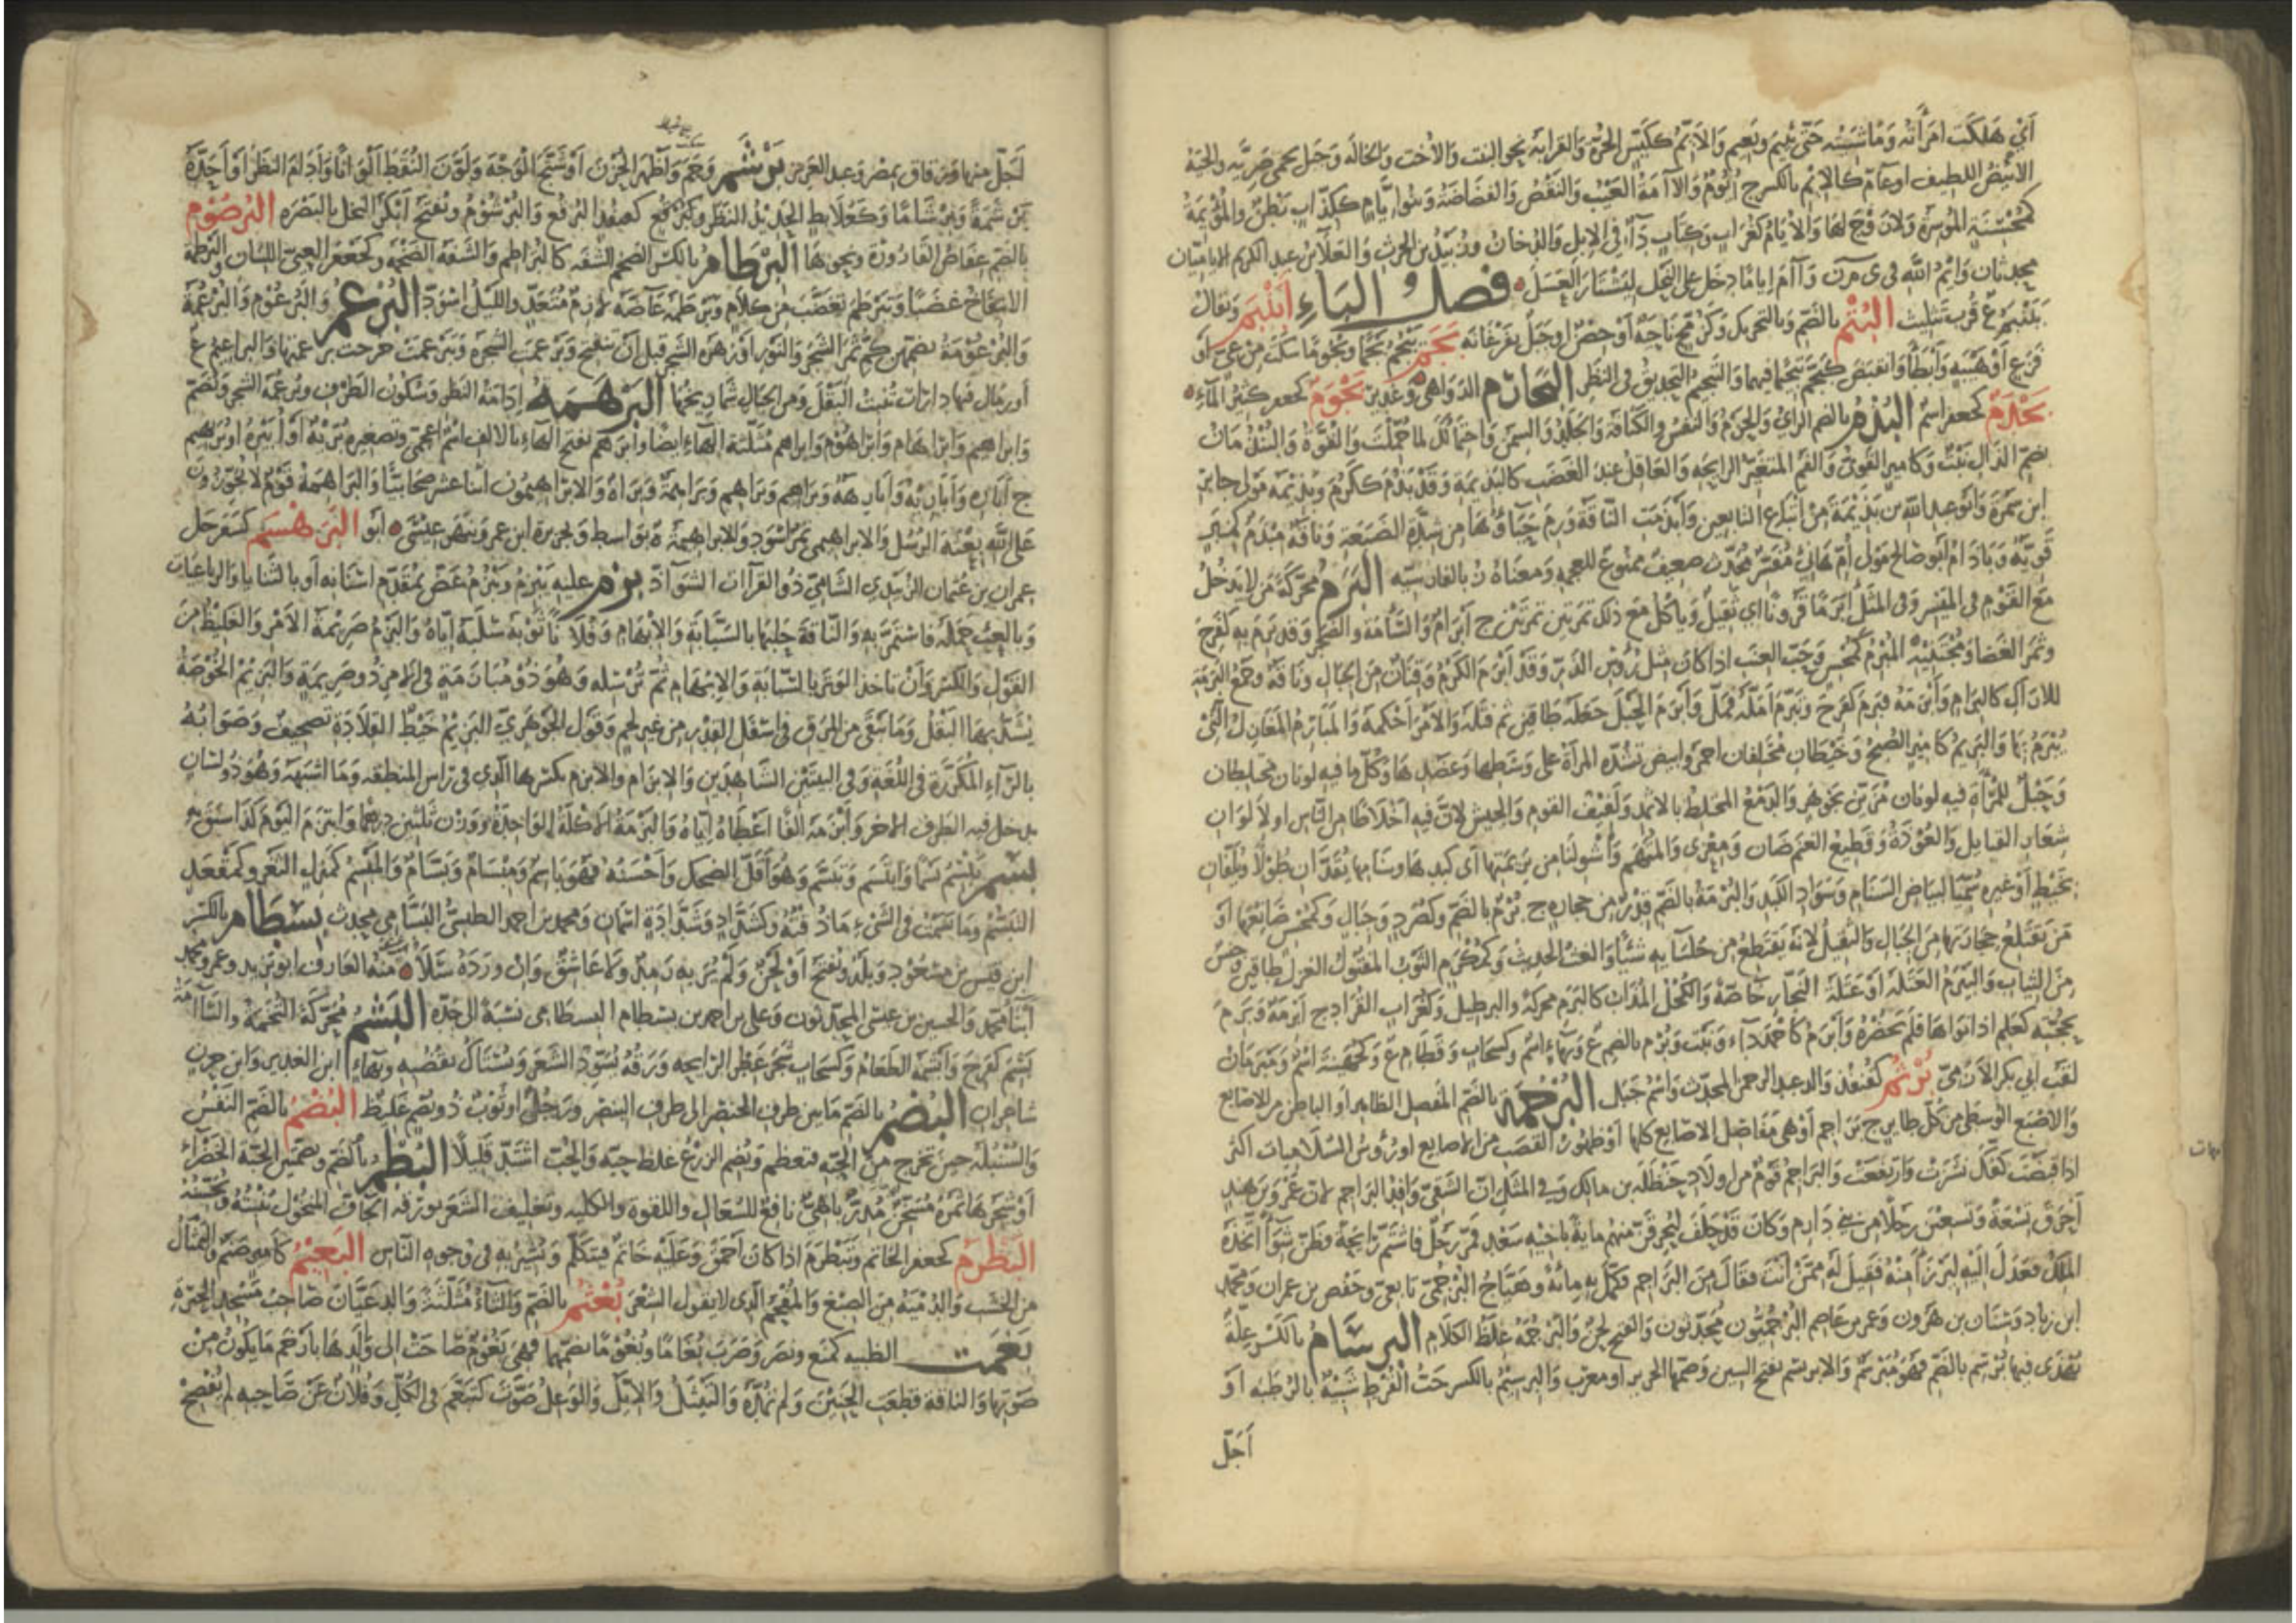 أي هلكت امرأته وما شبيته حتى يئيم وتئيم والأيم ككيس الحرة والقرابة نحو البنت والأخت والخالة وجبل بحمى ضرية والحية
الأبيض اللطيف أو عام كالإيم بالكسر ج أيوم والآمة العيب والنقص والغضاضة وبنو إيام ككذاب بطن والمؤيمة
كمحسنة الموسرة ولا زوج لها والأيام كغراب وكتاب داء في الإبل والدخان وزبيد بن الحرث والعلاء بن عبد الكريم الاياميان
محدثان وايم الله في ي م ن وآم إياما دخن على النحل ليشتار العسل فصل الباء أبنبم ويقال
يبنبم ع قرب تثليث البتم بالضم وبالتحريك وكزمج ناحية أو حصن أو جبل بفرغانة بجم يبجم بجما وبجوما سكت من عي أو
فزع أو هيبة وأبطأ وانقبض كبجم تبجيما فيهما والتبجيم التحديق في النظر البجارم الدواهي وغدير بحوم كجعفر كثير الماء
بحدم كجعفر اسم البذم بالضم الرأي والحزم والنفس والكثافة والجلد والسمن واحتمالك لما حملت والقوة والبنذمان
بضم الذال نبت وكامير القوي والفم المتغير الرايحة والعاقل عند الغضب كالبذيمة وقد بذم ككرم وبذيمة مولى جابر
ابن سمرة وأبو عبد الله بن بذيمة من أتباع التابعين وأبذمت الناقة ورم حياؤها من شدة الضبعة وناقة مبذم كمنبر
قوية وباذام أبو صالح مولى أم هانئ مفسر محدث ضعيف ممنوع للعجمة ومعناه ن بالفارسية البرم محركة من لا يدخل
مع القوم في الميسر وفي المثل أبرما قرونا أي ثقيل ويأكل مع ذلك تمرتين تمرتين ج أبرام والسآمة والضجر وقد برم به كفرح
وثمر العضاه ومجتنيه المبرم كمحسن وحب العنب إذا كان مثل رؤس الذر وقد أبرم الكرم وقنان من الجبال وناقة وجمع البرمة
للأراك كالبرام وأبرمه فبرم كفرح وتبرم أمله فمل وأبرم الحبل جعله طاقين ثم فتله والأمر أحكمه والمبارم المغازل التي
يبرم بها والبريم كامير الصبح وخيطان مختلفان أحمر وأبيض تشده المرأة على وسطها وعضدها وكل ما فيه لونان مختلطان
وحبل للمرأة فيه لونان مزين بجوهر والدمع المختلط بالإثمد ولفيف القوم والجيش لأن فيه أخلاطا من الناس أو لألوان
شعار القبايل والعوذة وقطيع الغنم ضان ومعزى والمتهم واشولنا من بريميها أي كبدها وسنامها يقدان طولا ويلفان
بخيط أو غيره سميا لبياض السنام وسواد الكبد والبرمة بالضم قدر من حجارة ج برم بالضم وكصرد وجبال وكمحسن صانعها أو
من يقتلع حجارتها من الجبال والثقيل لأنه يقتطع من جلسايه شيئا والغث الحديث وكمكرم الثوب المفتول الغزل طاقين وجنس
من الثياب والبيرم العتلة أو عتلة النجار خاصة والكحل المذاب كالبرم محركة والبرطيل وكغراب القراد ج أبرمة وبرم
بحجته كعلم إذا نواها فلم تحضره وأبرم كأحمد داء ونبت وبرم بالضم ع وبهاء اسم وكسحاب وقطام ع وكجهينة اسم ومبرمان
لقب أبي بكر الأزمي برثم كقنفذ والد عبد الرحمن المحدث واسم جبل البرجمة بالضم المفصل الظاهر أو الباطن من الأصابع
والإصبع الوسطى من كل طاير ج براجم أو هي مفاصل الأصابع كلها أو ظهور القصب من الأصابع أو رؤس السلاميات اكثر
إذا قبضت كفك نشزت وارتفعت والبراجم قوم من أولاد حنظلة بن مالك وفي المثل إن الشقي وافد البراجم لأن عمرو بن هند
أحرق تسعة وتسعين رجلا من بني دارم وكان قد حلف ليحرقن منهم ماية بأخيه سعد فمر رجل فاشتم رايحة فظن شواء اتخذه
الملك فعدل إليه ليرزأ منه فقيل له ممن أنت فقال من البراجم فكمل به مائة وهياج البرجمي تابعي وحفص بن عمران ومحمد
ابن زياد وسنان بن هرون وعمر بن عاصم البرجميون محدثون والفتح لحن والبرجمة غلظ الكلام البرسام بالكسر علة
يهذى فيها برسم بالضم فهو مبرسم والابريسم بفتح السين وضمها الحرير أو معرب والبرسيم بالكسر حب القرط شبيه بالرطبة أو
أجل
لجل منها وبزقاق بمصر وعبد العزيز برشم وجم وأظهر الحزن أو شنج الوجه ولون النقط ألوانا وأدام النظر أو أحده
برشمة وبرشاما وكعلابط الحديد النظر وكبرقع كصنفذ البرقع والبرشوم وتفتح أبكر النخل بالبصرة البرصوم
بالضم عفاص القارورة ونحوها البرطام بالكسر الضخم الشفة كالبراطم والشفة الضخمة وكجعفر العيي اللسان والبرطمة
الانتفاخ غضبا وتبرطم تغضب من كلام وبرطمه غاضه لازم متعد والليل اسود البرعم والبرعوم والبرعمة
والبرعومة بضمهن كم ثمر الشجر والنور أو زهرة الشجر قبل أن تنفتح وبرعمت الشجرة وتبرعمت خرجت برعمتها والبراعيم ع
أو رمال فيها دارات تنبت البقل ومن الجبال شماريخها البرهمة إدامة النظر وسكون الطرف وبرعمة الشجر وتضم
وابراهيم وابراهام وابراهوم وابراهم مثلثة الهاء أيضا وابرهم بفتح الهاء بلا الف اسم أعجمي وتصغيره بريه أو أبيره أو بريهيم
ج أباره وأباريه وأبارهة وبراهيم وبراهم وبراهمة وبراه والابراهيميون اثنا عشر صحابيا والبراهمة قوم لا يجوزون
على الله بعثة الرسل والابراهيمي تمر أسود والابراهيمية ة بواسط وبجزيرة ابن عمر وبنهر عيسى أبو البرهسم كسفرجل
عمران بن عثمان الزبيدي الشامي ذو القراآت الشواذ بزم عليه يبزم ويبزم عض بمقدم أسنانه أو بالثنايا والرباعيات
وبالعبء حمله فاستمر به والناقة حلبها بالسبابة والابهام وفلانا ثوبه سلبه إياه والبزم صريمة الأمر والغليظ من
القول والكسر وأن تأخذ الوتر بالسبابة والابهام ثم ترسله وهو ذو مبازمة في الأمر ذو صريمة والبزيم الخوصة
يشد بها البقل وما يبقى من المرق في أسفل القدر من غير لحم وقول الجوهري البزيم خيط القلادة تصحيف وصوابه
بالراء المكررة في اللغة وفي البيتين الشاهدين والابزام والابزيم بكسرهما الذي في رأس المنطقة وما أشبهه وهو ذو لسان
يدخل فيه الطرف الآخر وأبزمه ألفا أعطاه إياه والبزمة الأكلة الواحدة ووزن ثلثين درهما وابتزم اليوم كذا سبق به
بسم يبسم بسما وابتسم وتبسم وهو أقل الضحك وأحسنه فهو باسم ومبسام وبسام والمبسم كمنزل الثغر وكمقعد
التبسم وما بسمت في الشيء ما ذقته وكشداد وشدادة اسمان ومحمد بن احمد الطبسي البسامي محدث بسطام بالكسر
ابن قيس بن مسعود وبلد ويفتح أو لحن ولم ير به رمد ولا عاشق وإن ورده سلا منه العارف أبو يزيد وعمر ومحمد
أبنا محمد والحسين بن عيسى المحدثون وعلي بن احمد بن بسطام البسطامي نسبة الى جده البشم محركة التخمة والسآمة
بشم كفرح وأبشمه الطعام وكسحاب شجر عطر الرايحة ورقه يسود الشعر ويستاك بقضبه وبهاء ابن الغدير وابن حزن
شاعران البصم بالضم ما بين طرف الخنصر الى طرف البنصر ورجل أو ثوب ذو بصم غليظ البضم بالضم النفس
والسنبلة حين تخرج من الحبة فتعظم وبضم الزرع غلظ حبه والحب اشتد قليلا البطم بالضم وبضمتين الحبة الخضراء
أو شجرها ثمره مسخن مدر باهي نافع للسعال واللقوة والكلية وتغليف الشعر بورقه الجاف المنخول ينبته ويحسنه
البظرم كجعفر الخاتم وتبظرم إذا كان أحمق وعليه خاتم فيتكلم ويشير به في وجوه الناس البعيم كأمير صنم والتمثال
من الخشب والدمية من الصبغ والمفحم الذي لا يقول الشعر بعثم بالضم والثاء مثلثة والد عيان صاحب مسجد الجيزة
بغمت الظبية كمنع ونصر وضرب بغاما وبغوما بضمهما فهي بغوم صاحت إلى ولدها بأرخم ما يكون من
صوتها والناقة قطعت الحنين ولم تمده والثيتل والايل والوعل صوت كتبغم في الكل وفلان عن صاحبه لم يفصح